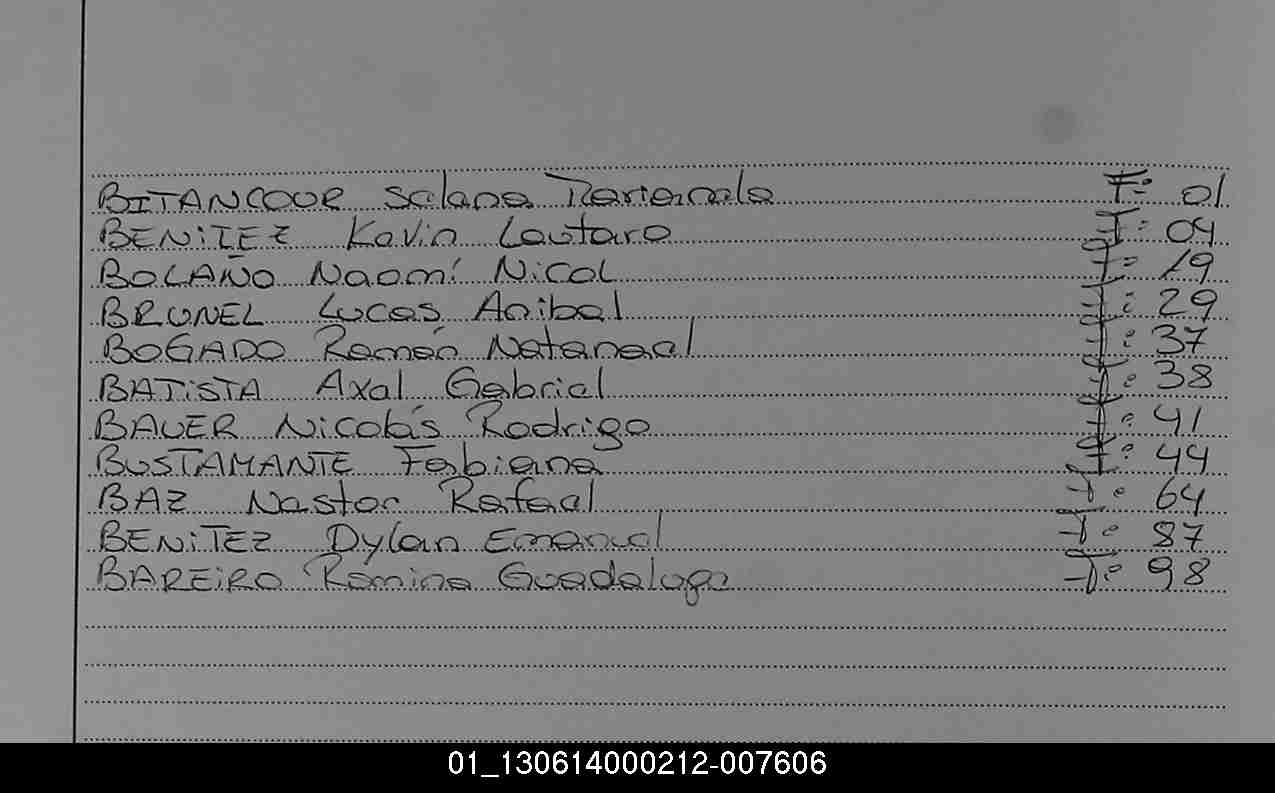 BITANCOUR Selena Marianela F: 01
BENiTEZ Kevin Lautaro F: 04
BOLAÑO Naomí Nicol F: 19
BRUNEL Lucas Anibal F: 29
BOGADO Ramón Natanael F: 37
BATiSTA Axel Gabriel F: 38
BAUER Nicolás Rodrigo F: 41
BUSTAMANTE Fabiana F: 44
BAZ Nestor Rafael F: 64
BENiTEZ Dylan Emanuel F: 87
BAREiRO Romina Guadalupe F: 98
01_130614000212-007606